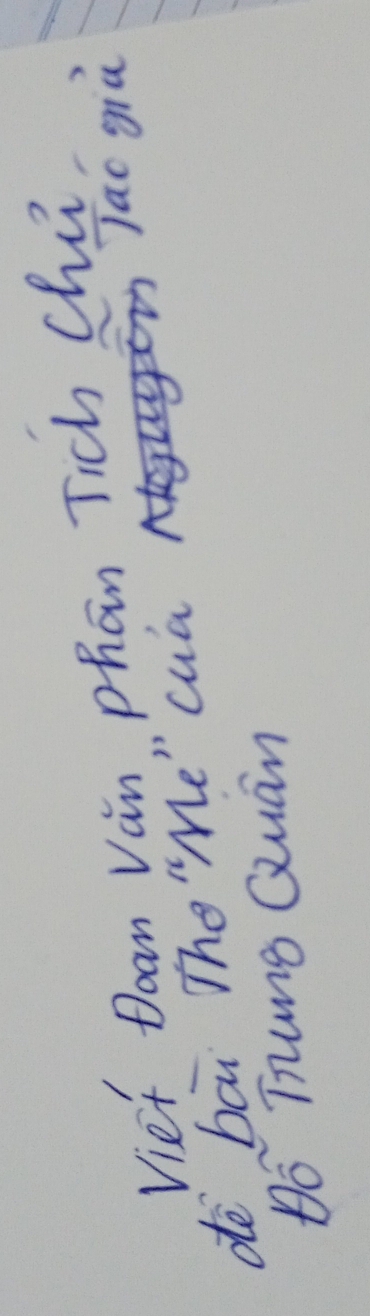 Viết Đoạn Văn phân Tích Chủ
đề bài Thơ "Mẹ" của Tác giả
Đỗ Trung Quân